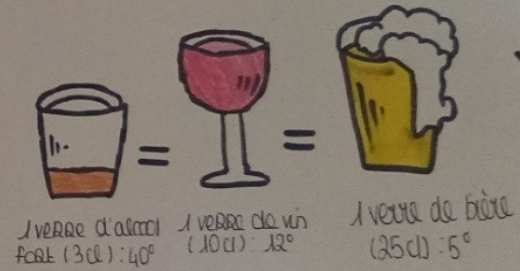 1 verre d'alcool
fort (3cl) : 40°
1 verre de vin
(10cl) : 12°
1 verre de bière
(25cl) : 5°